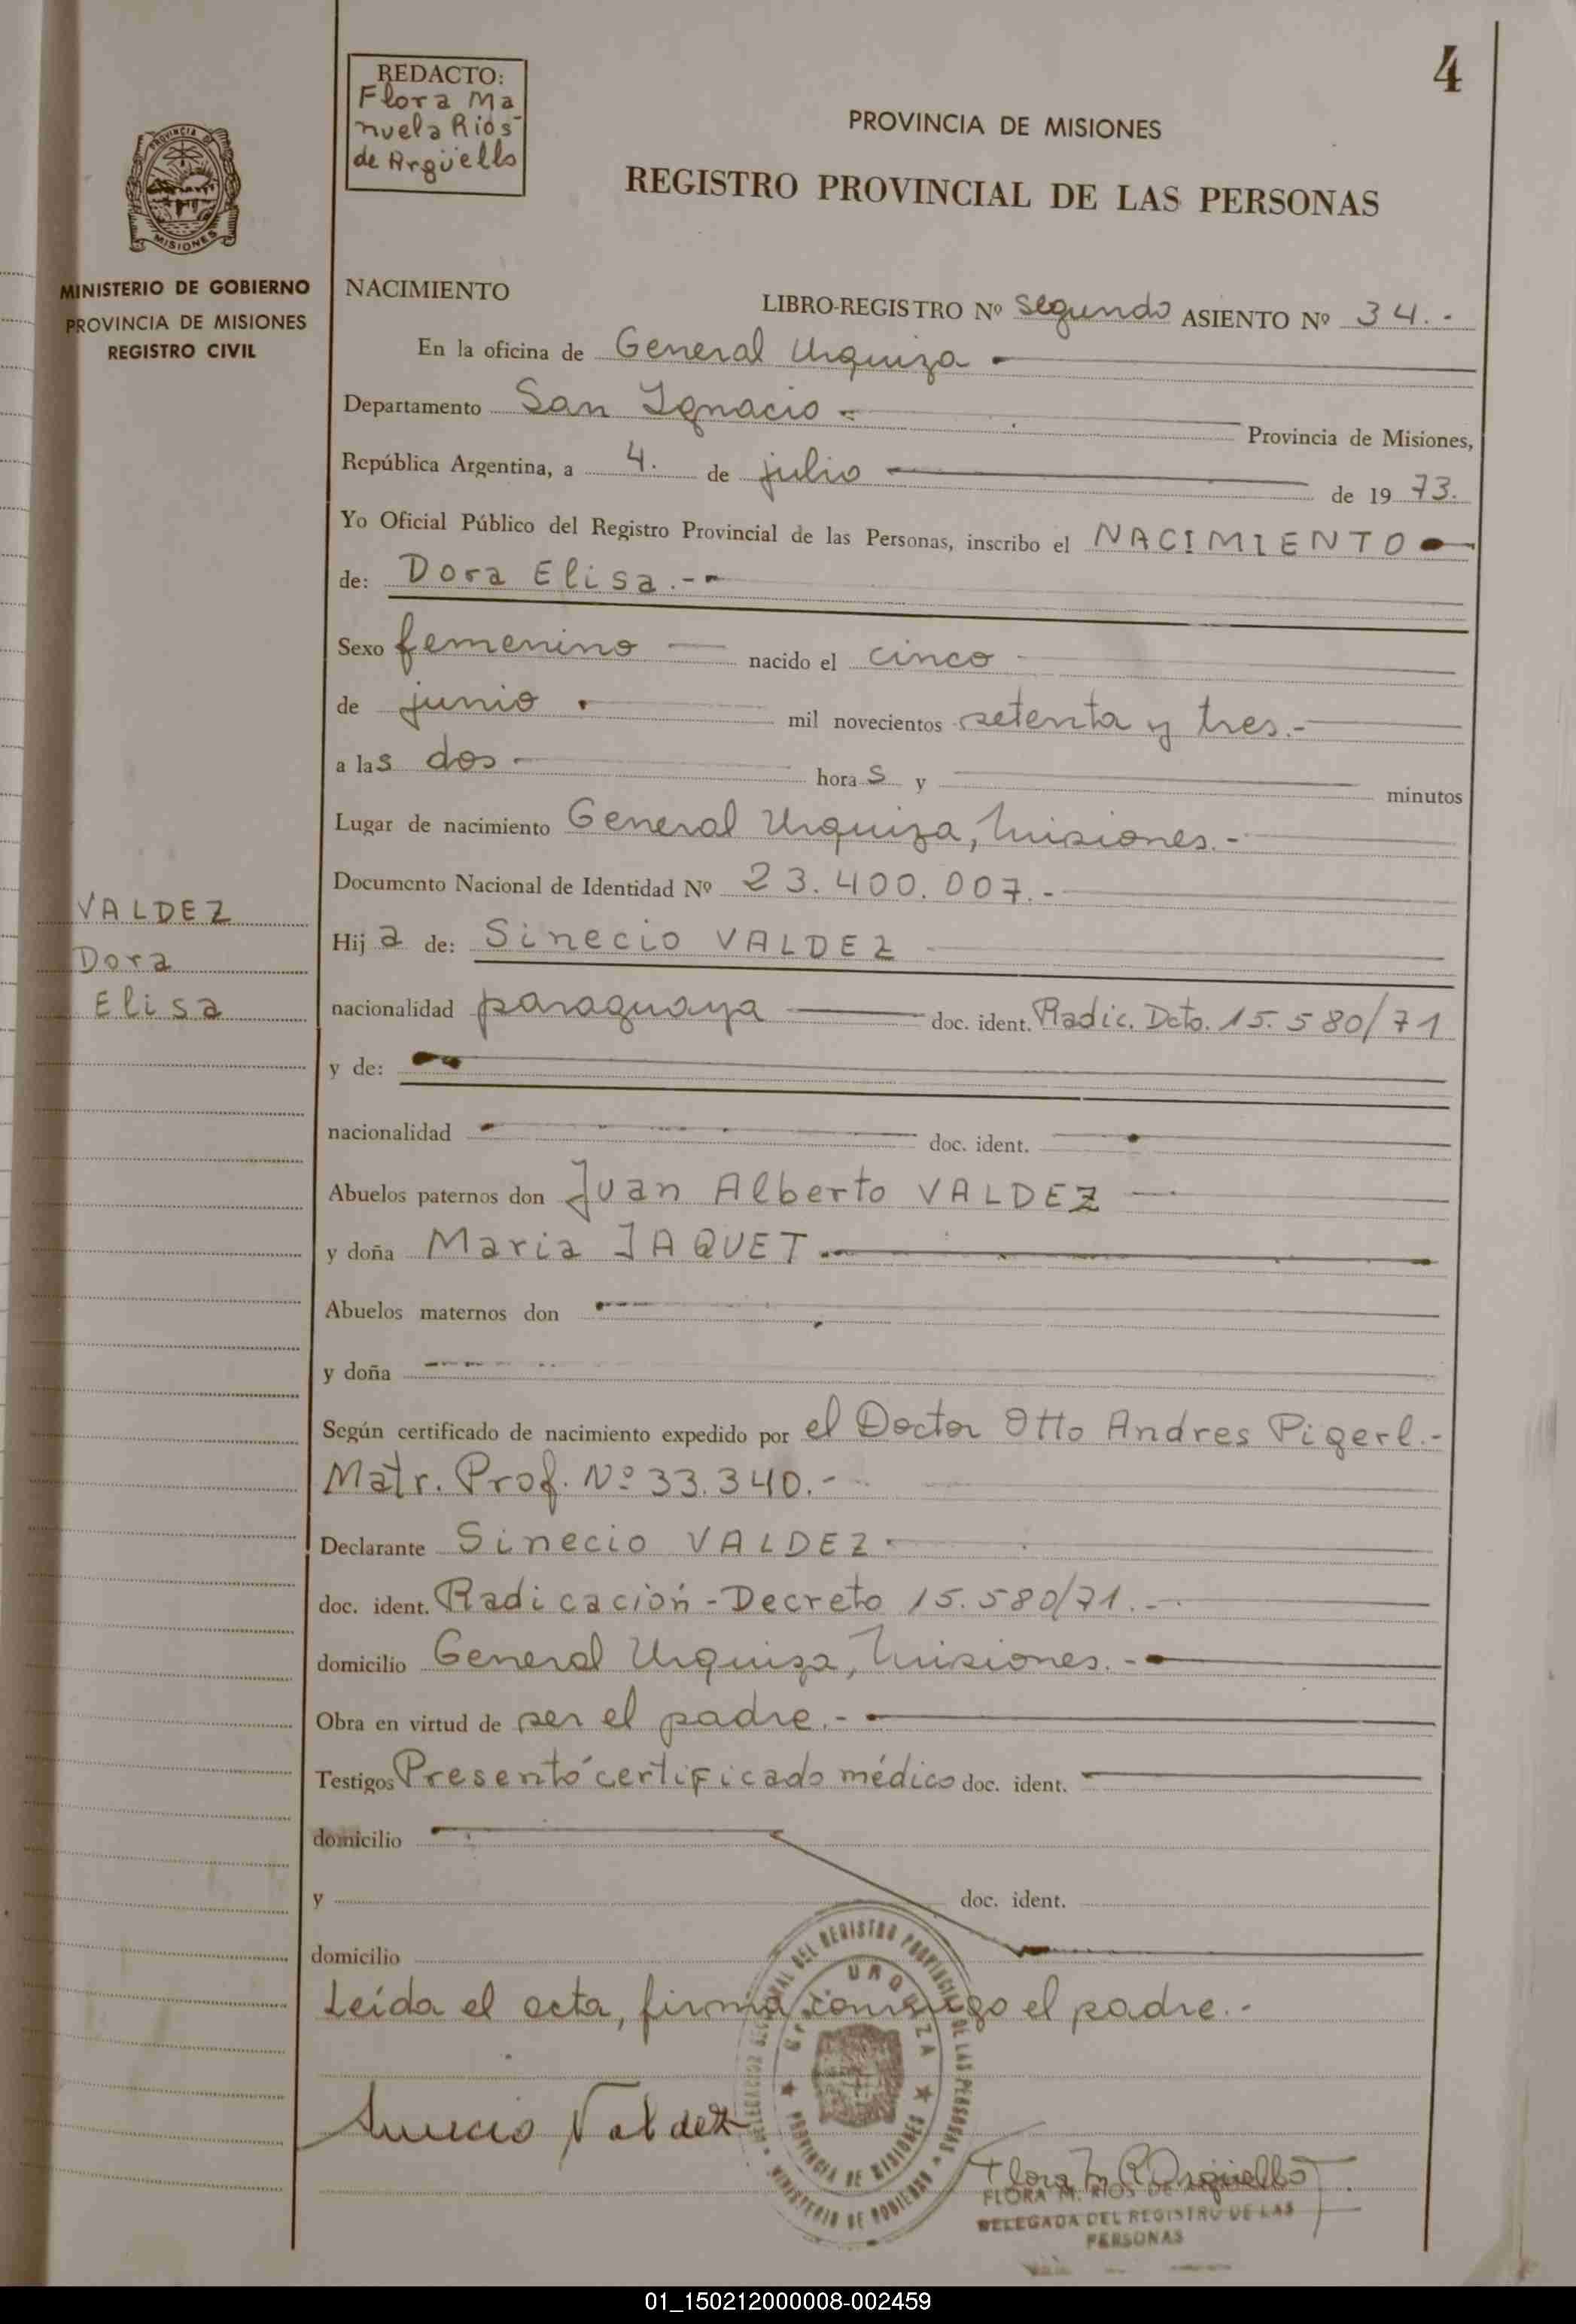 4
REDACTO:
Flora Ma
nuela Rios
de Argüello
PROVINCIA DE MISIONES
REGISTRO PROVINCIAL DE LAS PERSONAS
PROVINCIA DE
MISIONES
MINISTERIO DE GOBIERNO
PROVINCIA DE MISIONES
REGISTRO CIVIL
NACIMIENTO
LIBRO-REGISTRO Nº segundo ASIENTO Nº 34.-
En la oficina de General Urquiza
Departamento San Ignacio - Provincia de Misiones,
República Argentina, a 4. de julio de 19 73.
Yo Oficial Público del Registro Provincial de las Personas, inscribo el NACIMIENTO
de: Dora Elisa.--
Sexo femenino nacido el cinco
de junio mil novecientos setenta y tres.-
a las dos horas y minutos
Lugar de nacimiento General Urquiza, Misiones.-
Documento Nacional de Identidad Nº 23.400.007.-
VALDEZ
Dora
Elisa
Hija de: Sinecio VALDEZ
nacionalidad paraguaya doc. ident. Radic. Dcto. 15.580/71
y de:
nacionalidad doc. ident.
Abuelos paternos don Juan Alberto VALDEZ
y doña Maria JAQUET
Abuelos maternos don
y doña
Según certificado de nacimiento expedido por el Doctor Otto Andres Pigerl.-
Matr. Prof. Nº 33.340.-
Declarante Sinecio VALDEZ
doc. ident. Radicación-Decreto 15.580/71.-
domicilio General Urquiza, Misiones.-
Obra en virtud de ser el padre.-
Testigos Presentó certificado médico doc. ident.
domicilio
y doc. ident.
domicilio
Leída el acta, firma conmigo el padre.-
Sinecio Valdez
DEL REGISTRO PROVINCIAL DE LAS PERSONAS
MINISTERIO DE GOBIERNO
GRAL. URQUIZA
PROVINCIA DE MISIONES
Flora M R de Argüello
FLORA M. RIOS DE ARGÜELLO
DELEGADA DEL REGISTRO DE LAS
PERSONAS
01_150212000008-002459